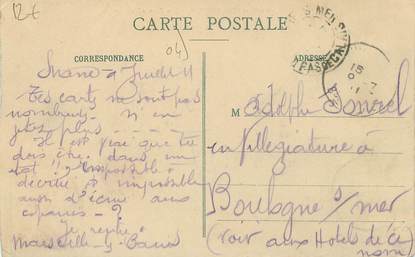 12€
CARTE POSTALE
04
CORRESPONDANCE
ADRESSE
4 Juillet 11
Tes cartes ne sont pas
nombreuses n'en
plus
Il est vrai que tu
dois être dans un
état impossible à
décrire & impossible
aussi d'écrire aux
copains - ?
Je rentre
Marseille
M Adolphe
en villégiature à
Boulogne s/mer
(voir aux Hotels de ce
nom)
PAS DE CALAIS